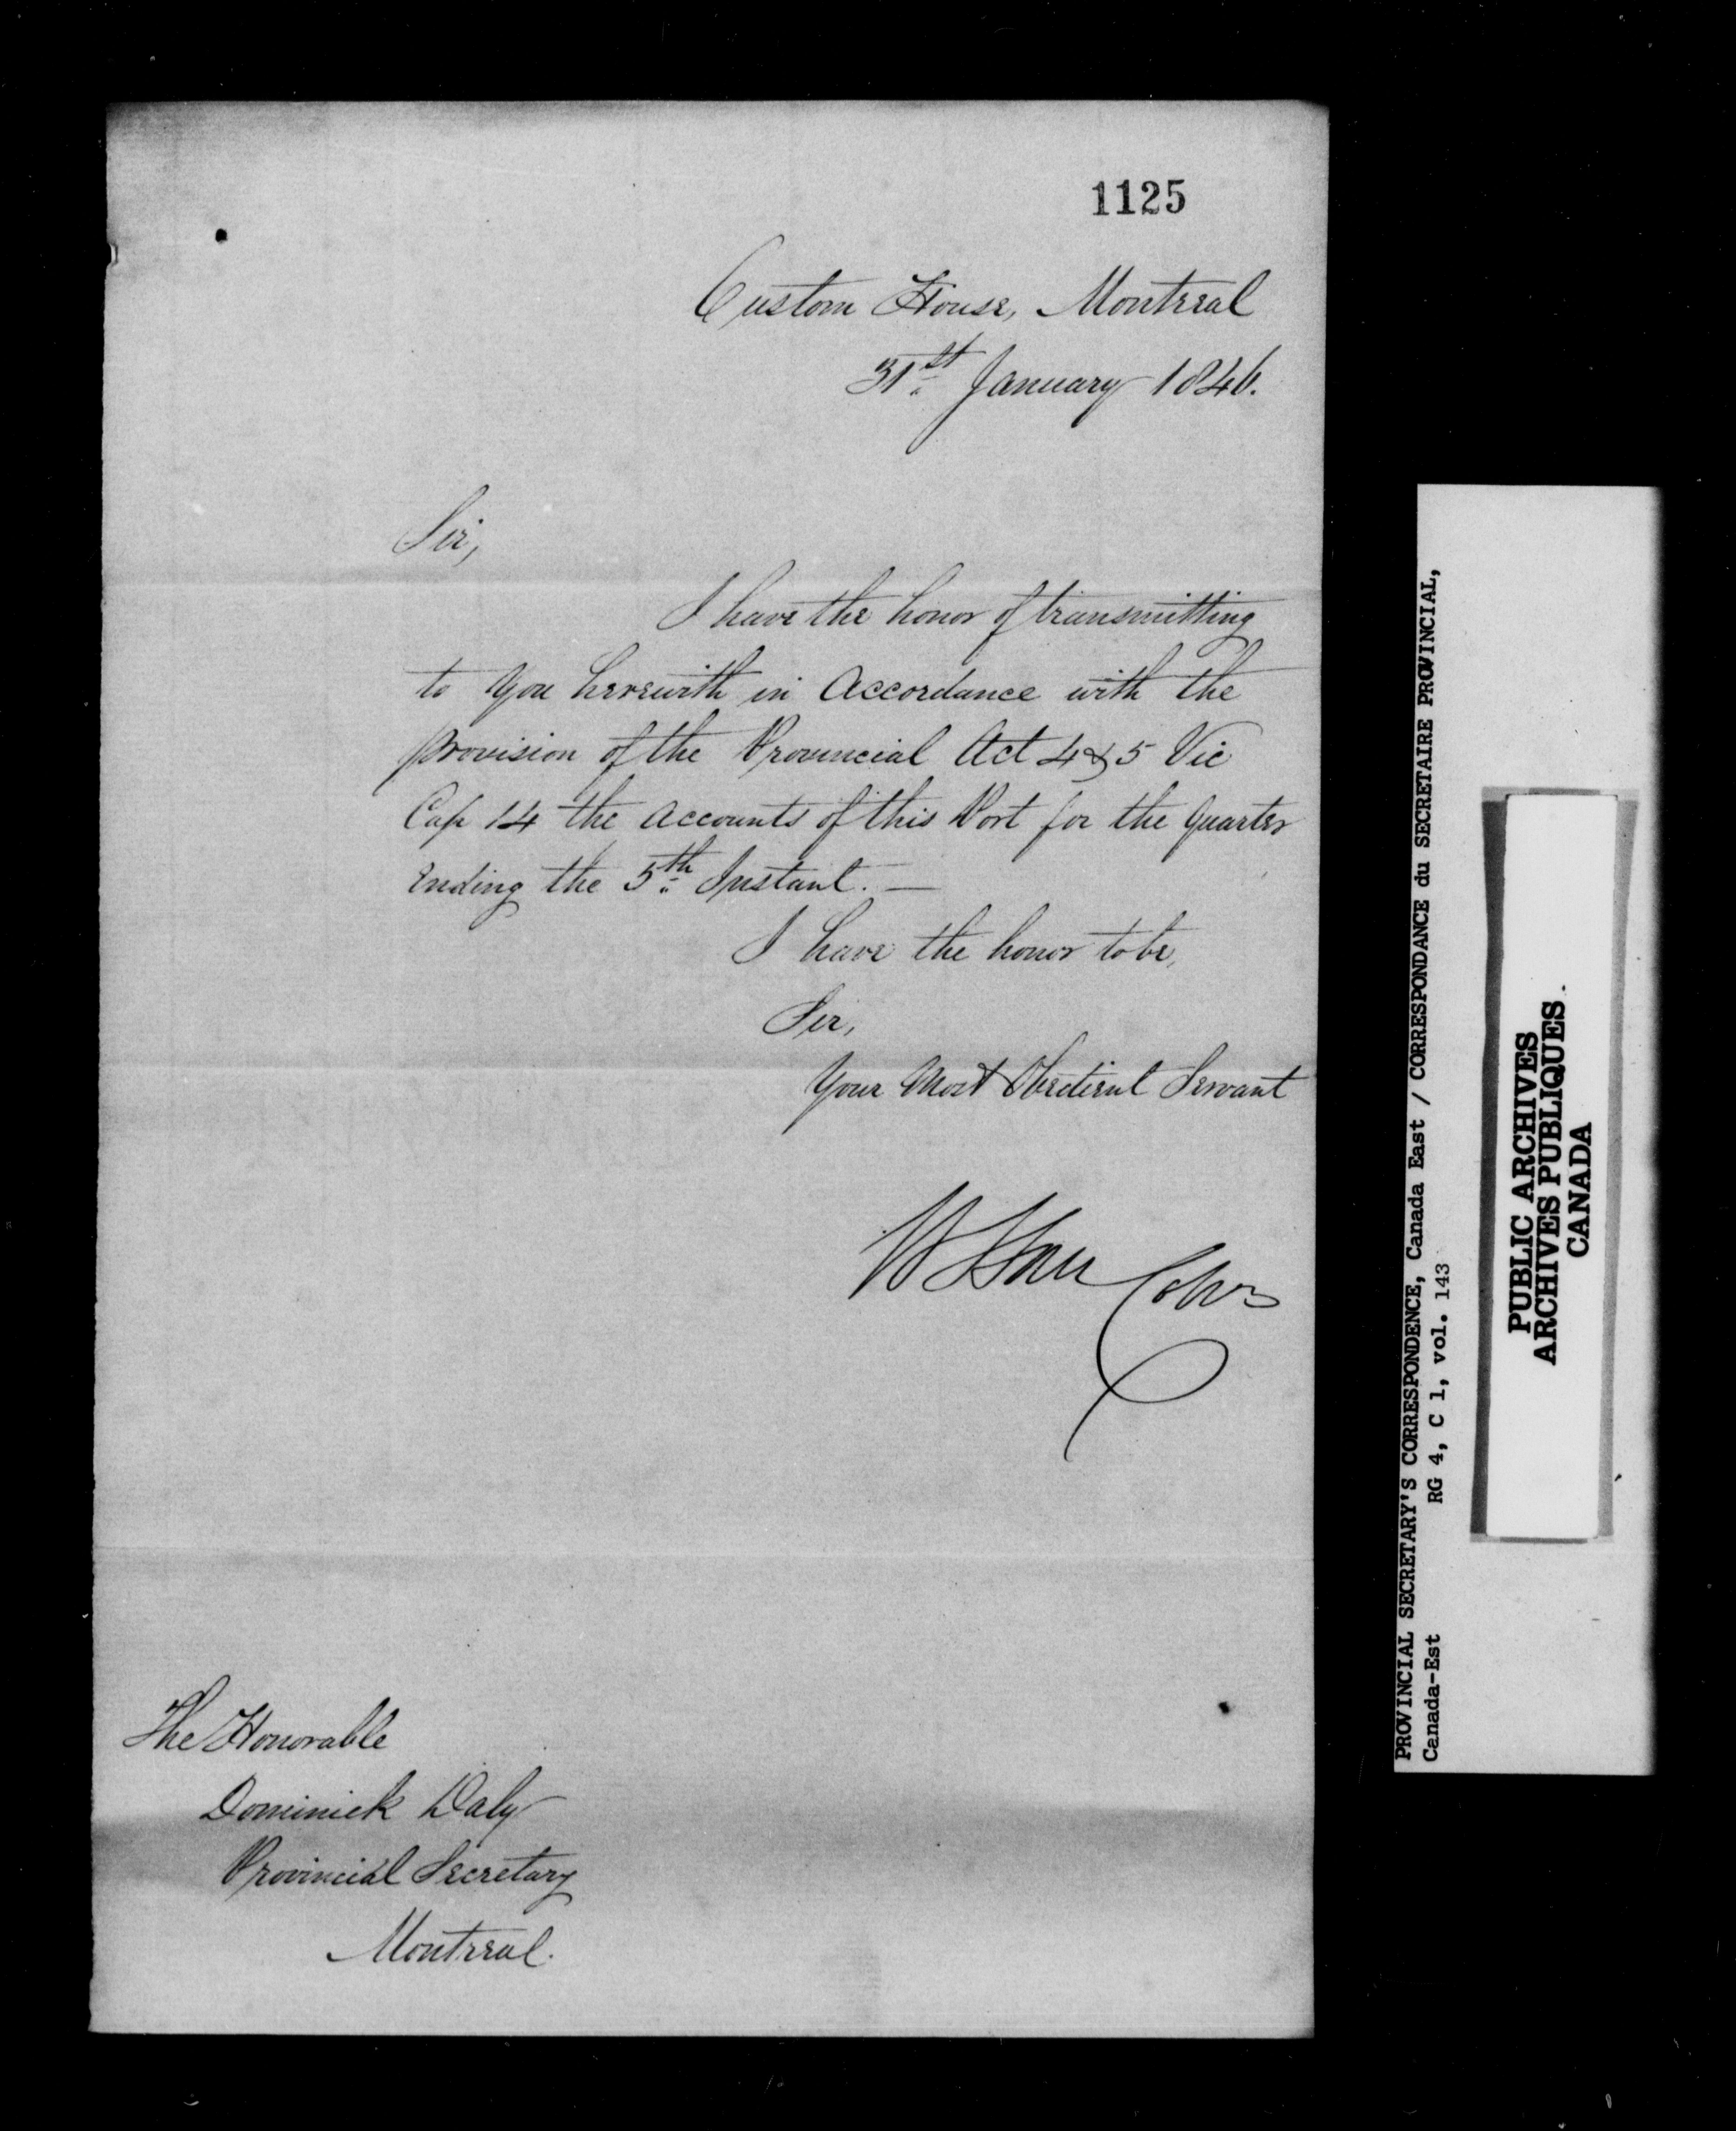 1125
Custom House, Montreal
31st January 1846.
Sir,
I have the honor of transmitting
to You herewith in Accordance with the
provision of the Provincial Act 4 & 5 Vic
Cap 14 the Accounts of this Port for the Quarter
Ending the 5th Instant. —
I have the honor to be,
Sir,
Your Most Obedient Servant
The Honorable
Dominick Daly
Provincial Secretary
Montreal.
PROVINCIAL SECRETARY'S CORRESPONDENCE, Canada East / CORRESPONDANCE du SECRETAIRE PROVINCIAL,
Canada-Est RG 4, C 1, vol. 143
PUBLIC ARCHIVES
ARCHIVES PUBLIQUES
CANADA